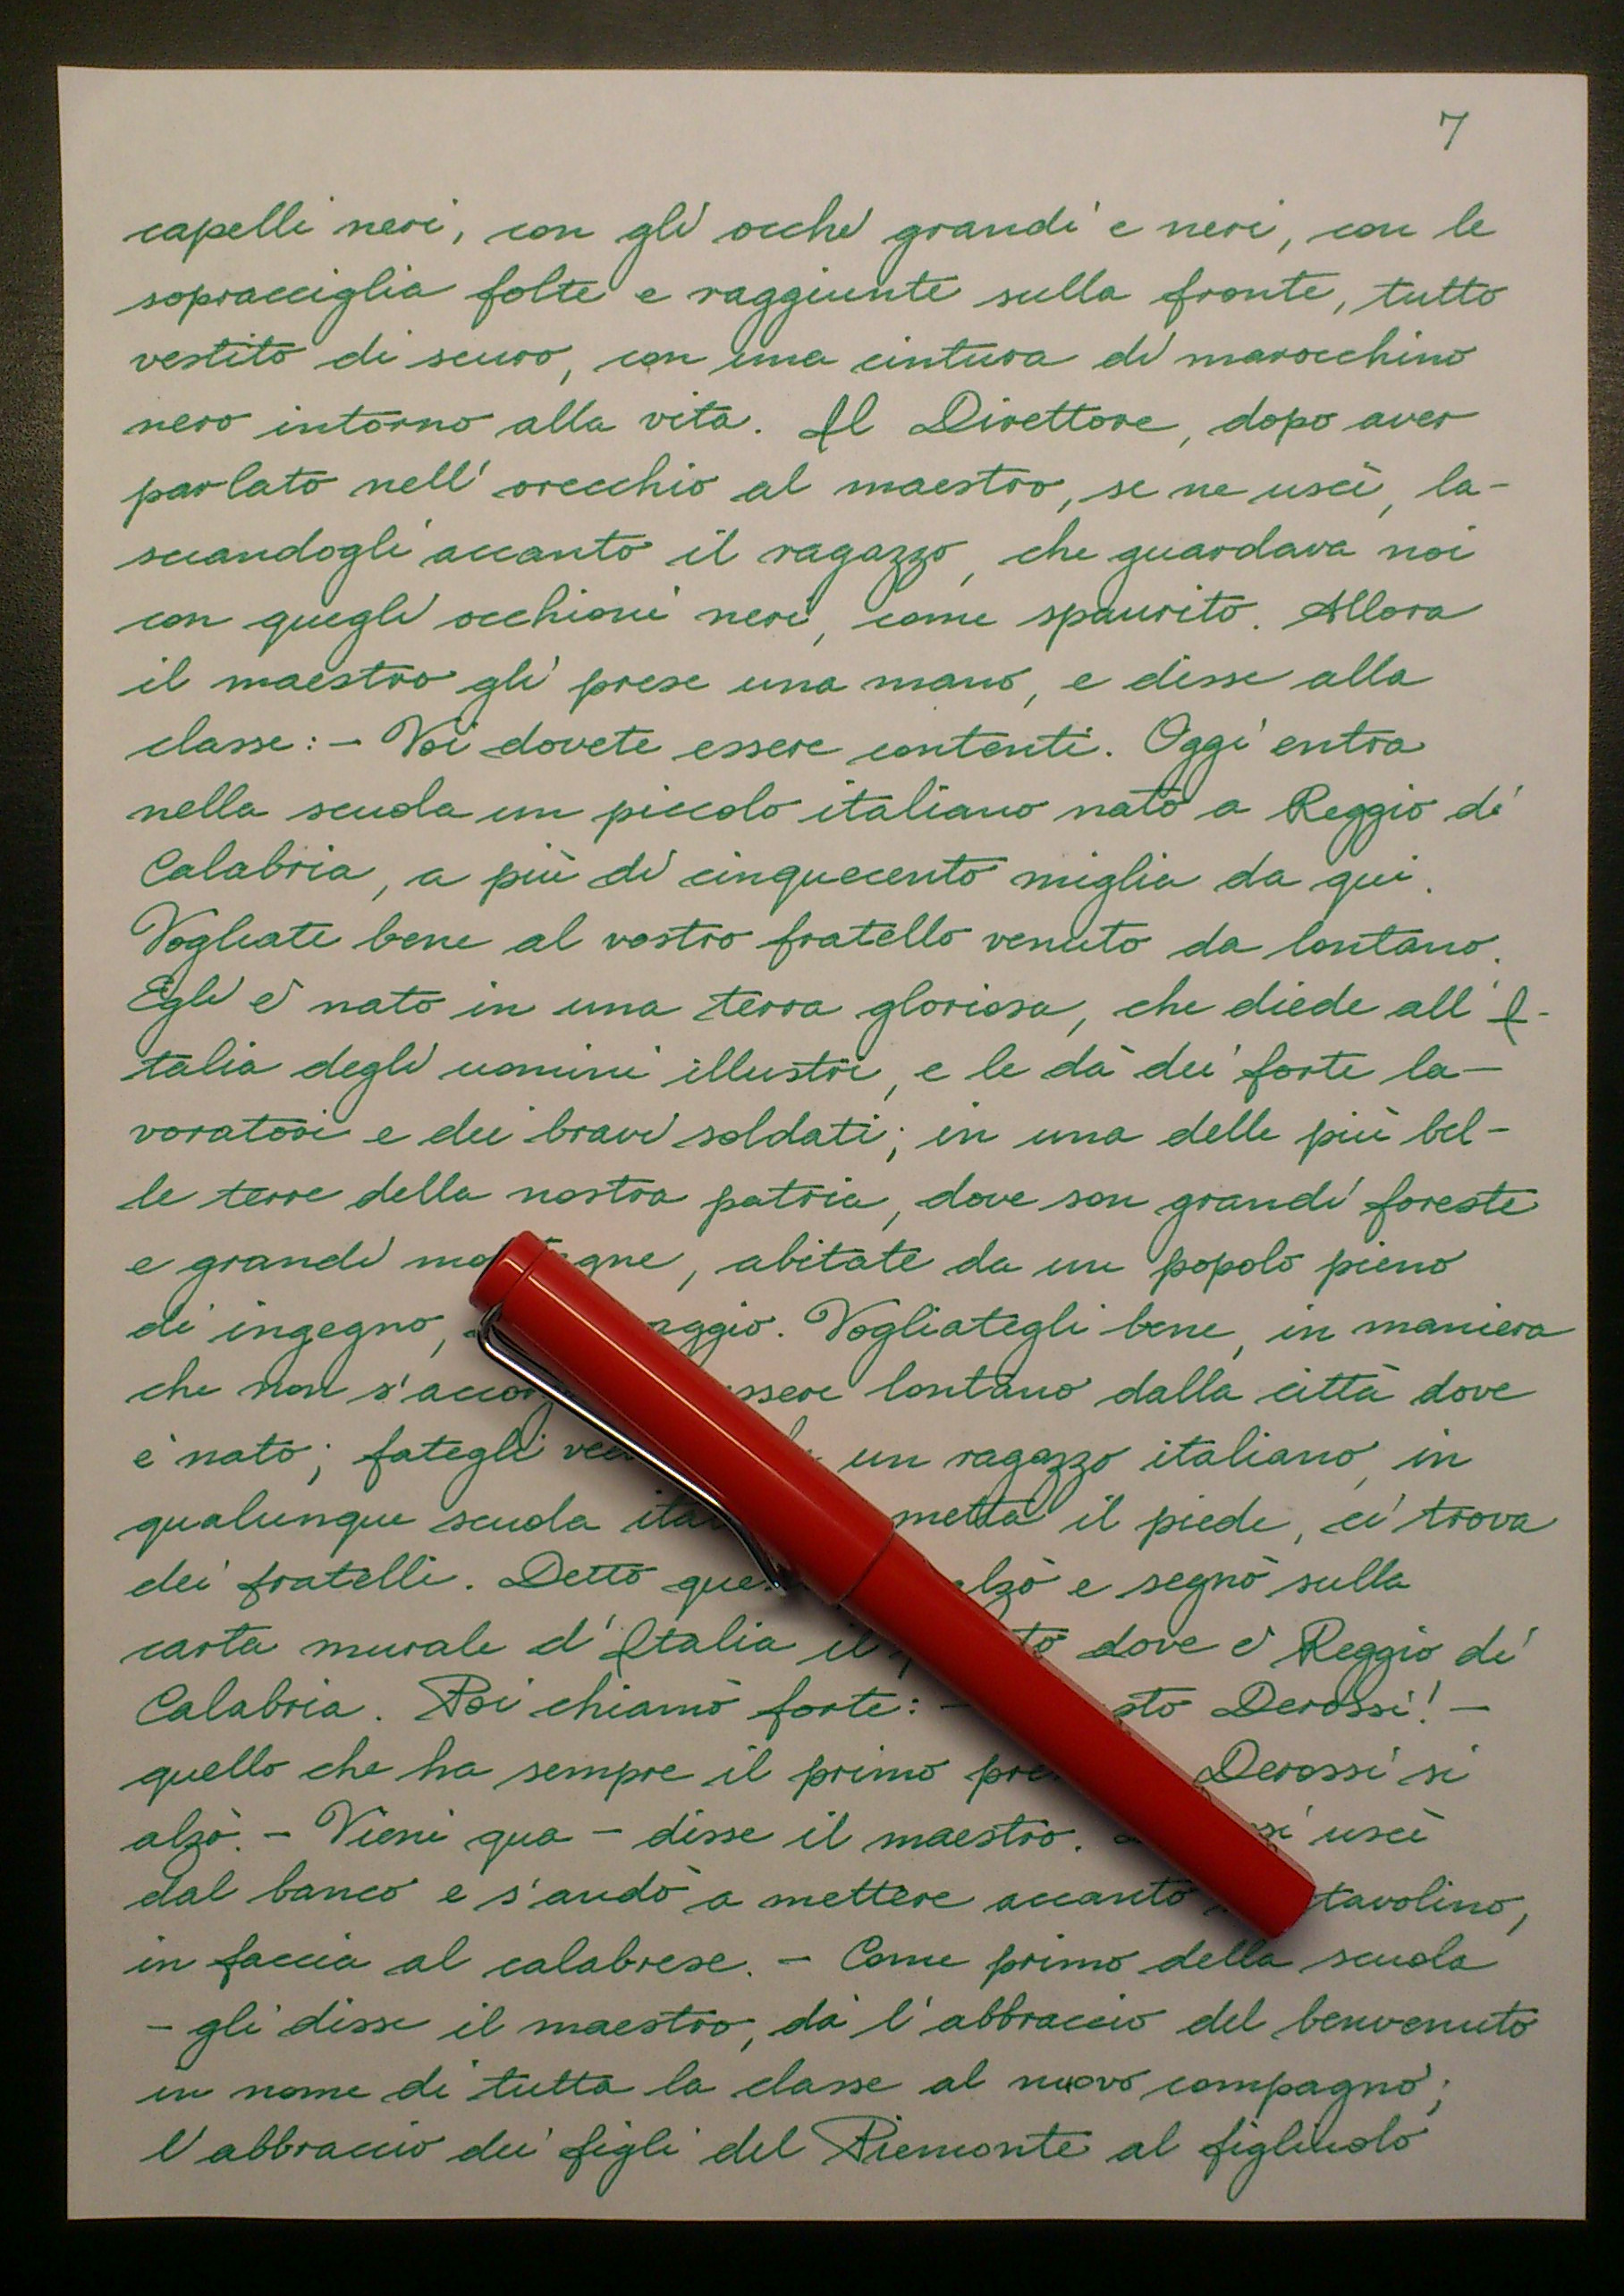 7
capelli neri, con gli occhi grandi e neri, con le
sopracciglia folte e raggiunte sulla fronte, tutto
vestito di scuro, con una cintura di marocchino
nero intorno alla vita. Il Direttore, dopo aver
parlato nell'orecchio al maestro, se ne uscì, la-
sciandogli accanto il ragazzo, che guardava noi
con quegli occhioni neri, come spaurito. Allora
il maestro gli prese una mano, e disse alla
classe: - Voi dovete essere contenti. Oggi entra
nella scuola un piccolo italiano nato a Reggio di
Calabria, a più di cinquecento miglia da qui.
Vogliate bene al vostro fratello venuto da lontano.
Egli è nato in una terra gloriosa, che diede all'I-
talia degli uomini illustri, e le dà dei forte la-
voratori e dei bravi soldati; in una delle più bel-
le terre della nostra patria, dove son grandi foreste
e grandi , abitate da un popolo pieno
di ingegno, . Vogliategli bene, in maniera
che non lontano dalla città dove
è nato; fategli un ragazzo italiano, in
qualunque scuola metta il piede, ci trova
dei fratelli. Detto e segnò sulla
carta murale d'Italia il dove è Reggio di
Calabria. Poi chiamò forte: - Derossi! -
quello che ha sempre il primo Derossi si
alzò. - Vieni qua - disse il maestro. uscì
dal banco e s'andò a mettere accanto tavolino,
in faccia al calabrese. - Come primo della scuola
- gli disse il maestro, dà l'abbraccio del benvenuto
in nome di tutta la classe al nuovo compagno;
l'abbraccio dei figli del Piemonte al figliuolo